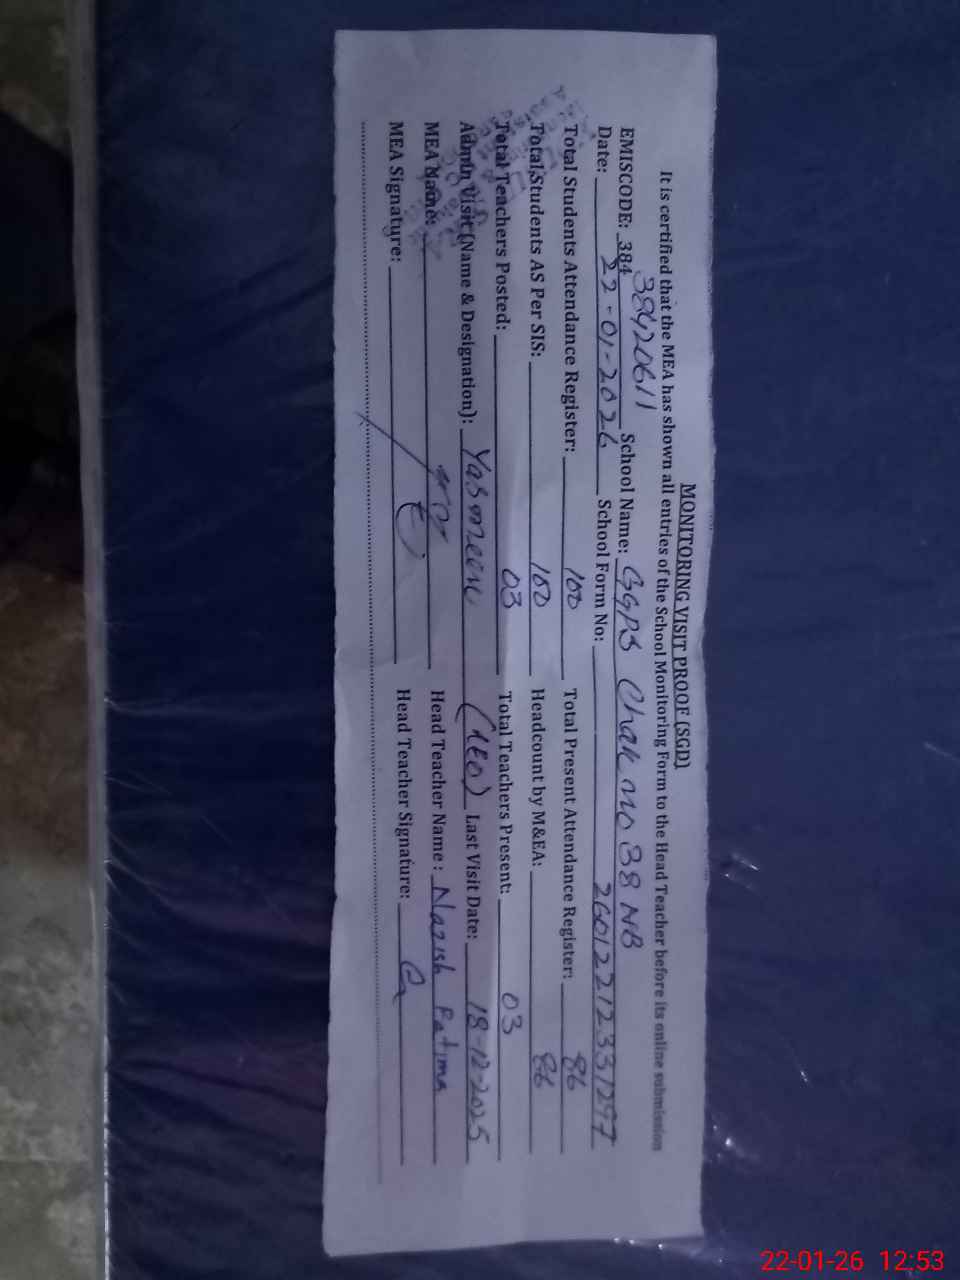 MONITORING VISIT PROOF (SGD)
It is certified that the MEA has shown all entries of the School Monitoring Form to the Head Teacher before its online submission
38420611
EMISCODE: 384 School Name: GGPS Chak no 38 NB
Date: 22-01-2026 School Form No: 26012212331297
Total Students Attendance Register: 100 Total Present Attendance Register: 86
Total Students AS Per SIS: 100 Headcount by M&EA: 86
Total Teachers Posted: 03 Total Teachers Present: 03
Admin Visit (Name & Designation): Yasmeen (AEO) Last Visit Date: 18-12-2025
MEA Name: Head Teacher Name : Nazish Fatima
MEA Signature: Head Teacher Signature:
22-01-26 12:53